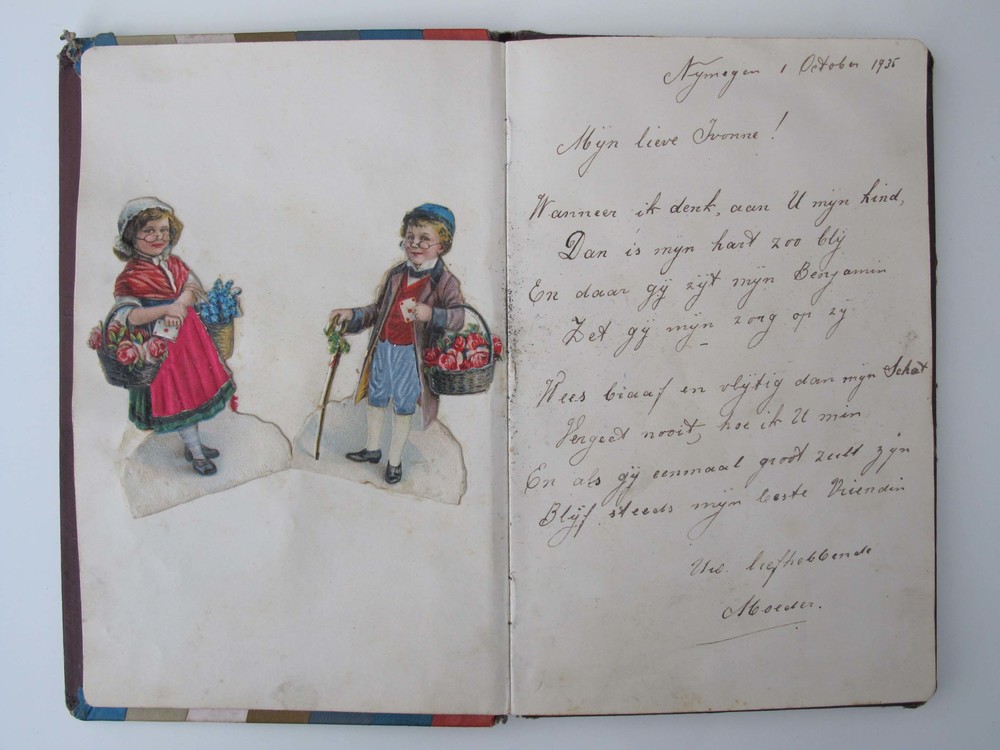 Nijmegen 1 October 1935
Mijn lieve Ivonne!
Wanneer ik denk, aan U mijn kind,
Dan is mijn hart zoo blij
En daar gij zijt mijn Benjamin
Zet gij mijn zorg op zij
Wees braaf en vlijtig dan mijn Schat
Vergeet nooit, hoe ik U min
En als gij eenmaal groot zult zijn
Blijf steeds mijn beste Vriendin
Uw liefhebbende
Moeder.